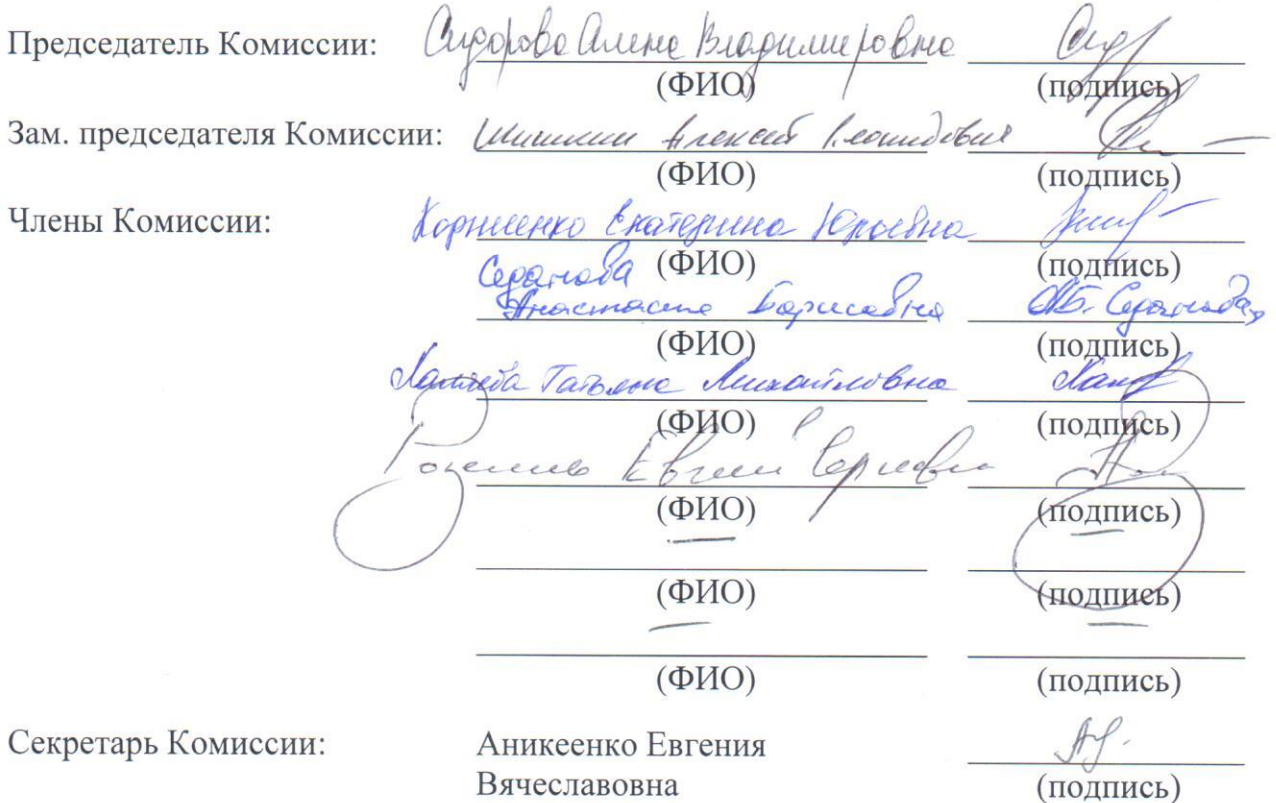 Председатель Комиссии: Сидорова Алена Владимировна
(ФИО) (подпись)
Зам. председателя Комиссии: Шишкин Алексей Леонидович
(ФИО) (подпись)
Члены Комиссии: Корниенко Екатерина Юрьевна
(ФИО) (подпись)
Седанова
Анастасия Борисовна А.Б. Седанова
(ФИО) (подпись)
Татьяна Михайловна
(ФИО) (подпись)
Евгений Сергеевич
(ФИО) (подпись)
(ФИО) (подпись)
(ФИО) (подпись)
Секретарь Комиссии: Аникеенко Евгения
Вячеславовна (подпись)